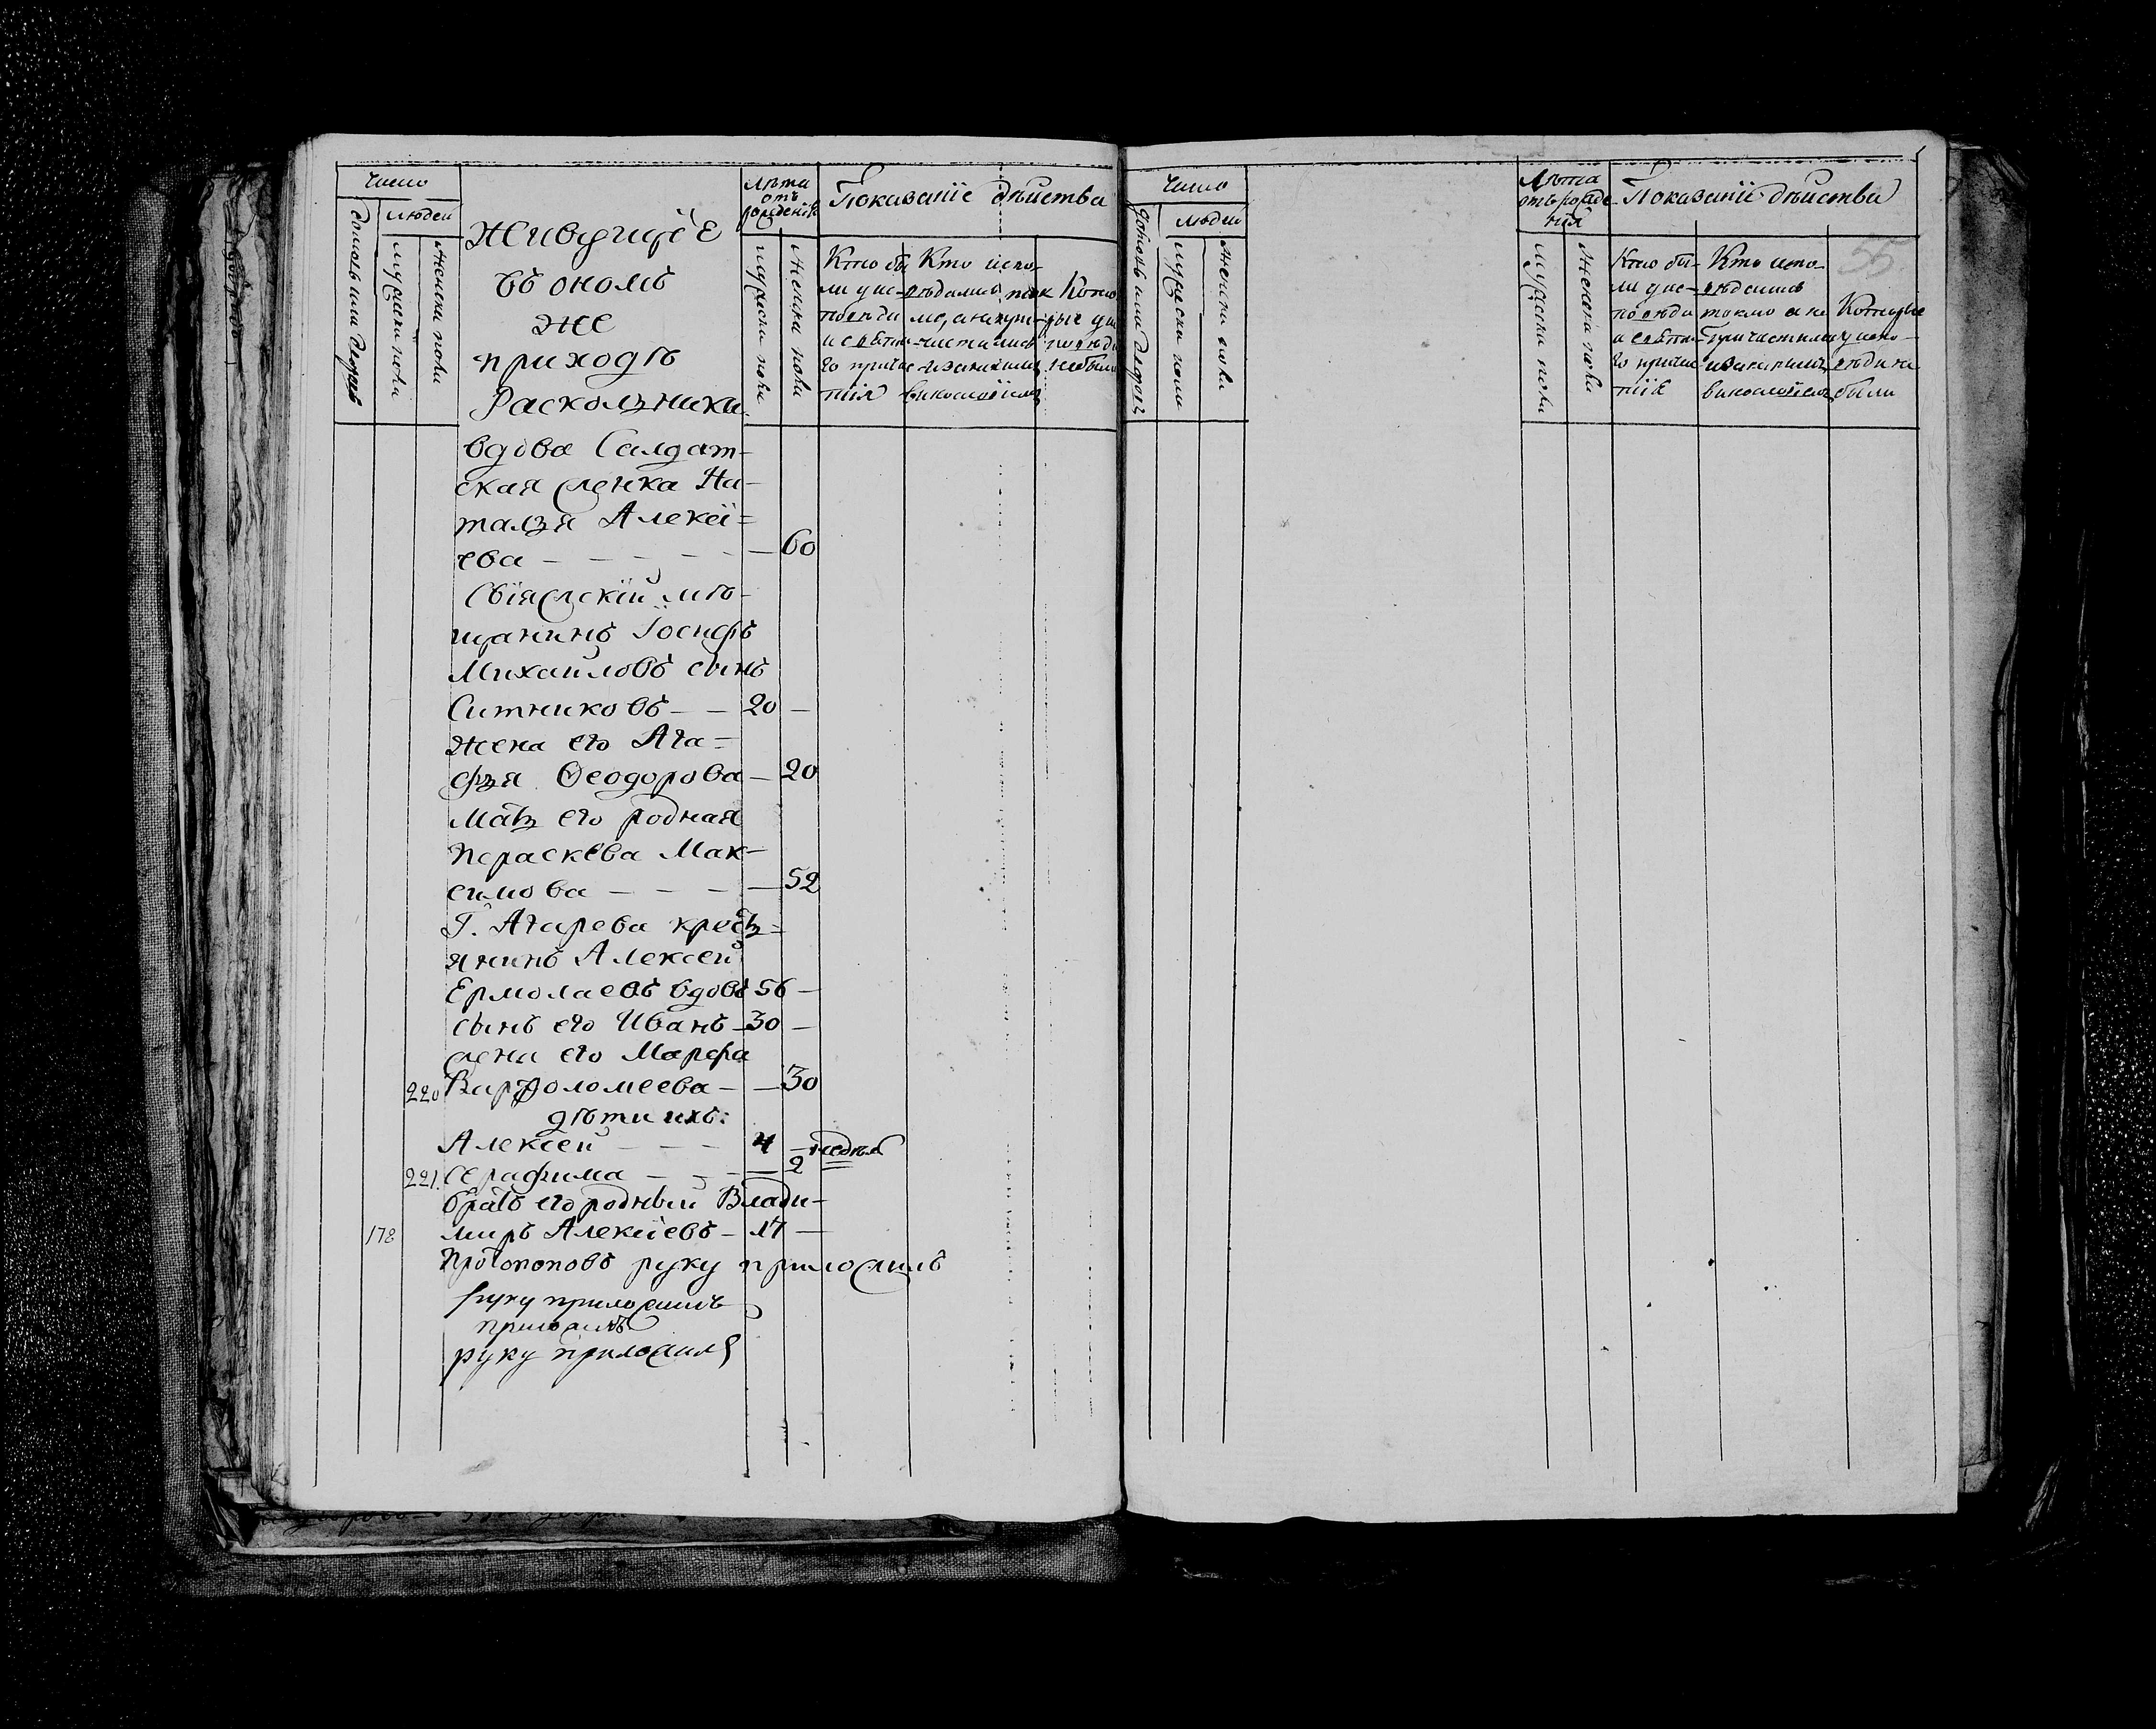 число
людей
домовъ или дворовъ
мужеска пола
женска пола
Живущїе
въ ономъ
же
приходѣ
Расколзники
Лѣта
отъ
рожденїя
мужеска пола
женска пола
Показанїе дѣйства
Кто бы-
ли у ис-
повѣди
и свята-
го прича-
тїя
Кто испо-
вѣдались
вдова Салдат-
ская женка На-
талзя Алексі=
ева — — — — — — 60
Свїяжскїй мѣ-
щанинъ Іосифъ
Михайловъ сынъ
Ситниковъ — — 20 —
жена его Ага=
фзя Ѳеодорова — 20
Мать его родная
Параскева Мак-
симова — — — — 52
Г. Агарева кресть=
янинъ Алексей
Ермолаевъ вдовъ 56 —
сынъ его Иванъ — 30 —
жена его Марфа
220 Варѳоломеева — — 30
дѣти ихъ:
Алексей — — — 4 — недѣль
221. Серафима — — — 2
братъ его родный Влади-
178 миръ Алексіевъ — 17 —
Протопоповъ руку приложилъ
руку приложилъ
приложилъ
руку приложилъ
число
людей
домовъ или дворовъ
мужеска пола
женска пола
Лѣта
отъ рожде-
нїя
мужеска пола
женска пола
Показанїе дѣйства
55
Кто бы-
ли у ис-
повѣди
и свята-
го прича-
тїя
Кто испо-
вѣдались
токмо а не
причастились
Которые
у испо-
вѣди не
были